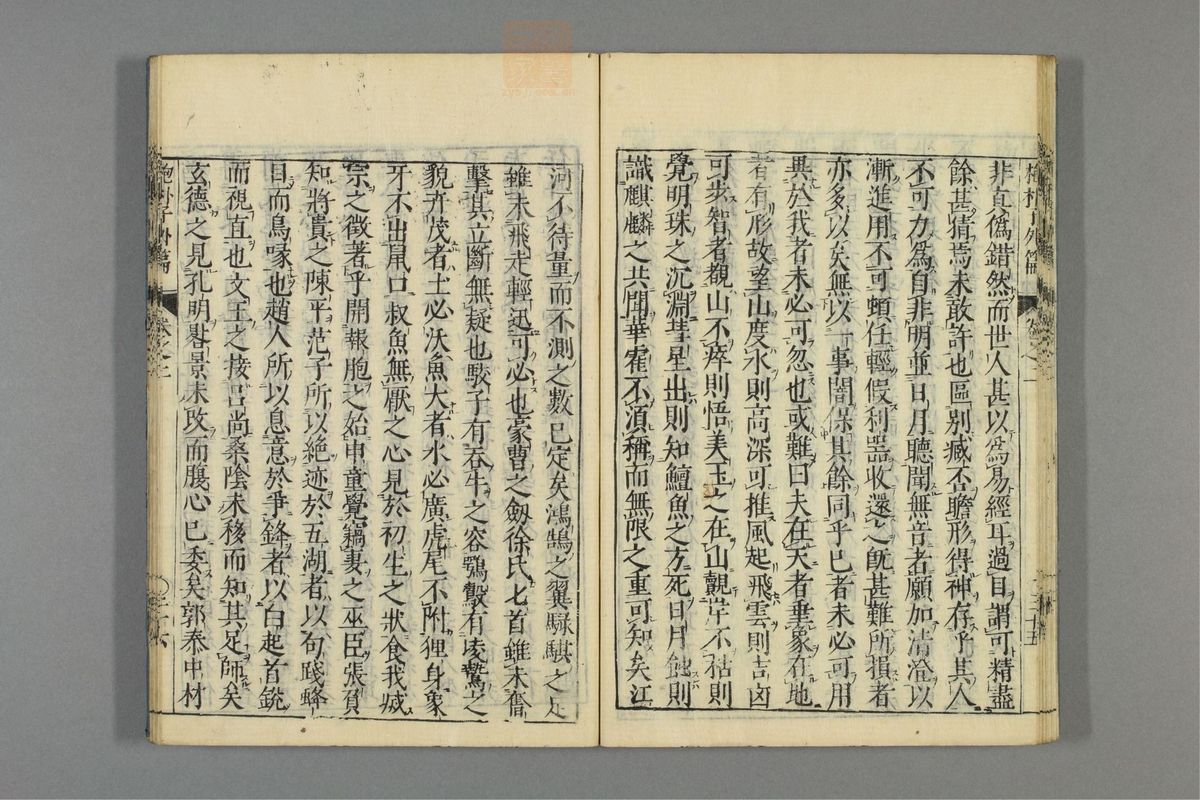 非直偽錯然而世人甚以為易經耳過目謂可精盡
餘甚猜焉未敢許也區別臧否瞻形得神存乎其人
不可力為自非明並日月聽聞無音者願加清澄以
漸進用不可頓任輕假利器收還之既甚難所損者
亦多以矣無以一事闇保其餘同乎已者未必可用
異於我者未必可忽也或難曰夫在天者垂象在地
者有形故望山度水則高深可推風起飛雲則吉凶
可步智者覩山不瘁則悟美玉之在山覿岸不枯則
覺明珠之沉淵彗星出則知鱣魚之方死日月蝕則
識麒麟之共鬪華霍不須稱而無限之重可知矣江
河不待量而不測之數已定矣鴻鵠之翼騄騏之足
雖未飛走輕迅可必也豪曹之劔徐氏匕首雖未奮
擊其立斷無疑也駮子有吞牛之容鶚鷇有凌鷙之
貌卉茂者土必沃魚大者水必廣虎尾不附狸身象
牙不出鼠口叔魚無厭之心見於初生之狀食我滅
宗之徵著乎開報胞之始申童覺竊妻之巫臣張負
知將貴之陳平范子所以絕迹於五湖者以句踐蜂
目而鳥喙也趙人所以息意於爭鋒者以白起首銳
而視直也文王之接呂尚桑陰未移而知其足師矣
玄德之見孔明晷景未改而腹心已委矣郭泰中材
抱朴子外篇
卷之二
三十六